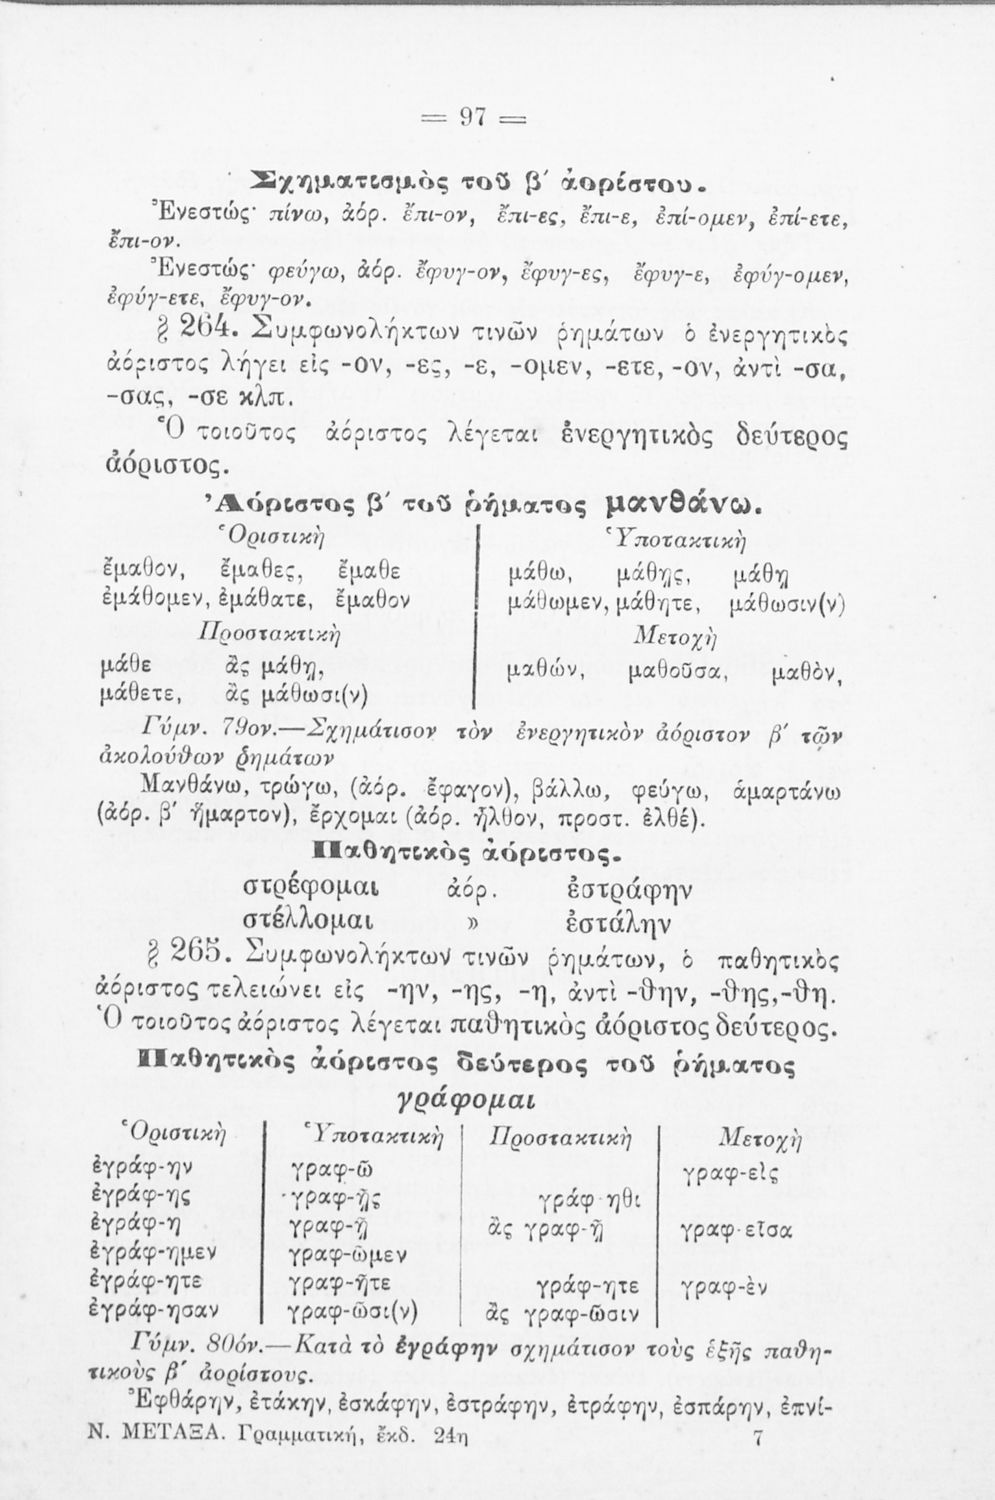 = 97 =
Σχηματισμὸς τοῦ β΄ ἀορίστου.
Ἐνεστώς· πίνω, ἀόρ. ἔπι-ον, ἔπι-ες, ἔπι-ε, ἐπί-ομεν, ἐπί-ετε,
ἔπι-ον.
Ἐνεστώς· φεύγω, ἀόρ. ἔφυγ-ον, ἔφυγ-ες, ἔφυγ-ε, ἐφύγ-ομεν,
ἐφύγ-ετε, ἔφυγ-ον.
§ 264. Συμφωνολήκτων τινῶν ῥημάτων ὁ ἐνεργητικὸς
ἀόριστος λήγει εἰς -ον, -ες, -ε, -ομεν, -ετε, -ον, ἀντὶ -σα,
-σας, -σε κλπ.
Ὁ τοιοῦτος ἀόριστος λέγεται ἐνεργητικὸς δεύτερος
ἀόριστος.
Ἀόριστος β΄ τοῦ ῥήματος μανθάνω.
Ὁριστικὴ Ὑποτακτικὴ
ἔμαθον, ἔμαθες, ἔμαθε μάθω, μάθῃς, μάθῃ
ἐμάθομεν, ἐμάθατε, ἔμαθον μάθωμεν, μάθητε, μάθωσιν(ν)
Προστακτικὴ Μετοχὴ
μάθε ἂς μάθῃ, μαθών, μαθοῦσα, μαθὸν,
μάθετε, ἂς μάθωσι(ν)
Γύμν. 79ον.—Σχημάτισον τὸν ἐνεργητικὸν ἀόριστον β΄ τῶν
ἀκολούθων ῥημάτων
Μανθάνω, τρώγω, (ἀόρ. ἔφαγον), βάλλω, φεύγω, ἁμαρτάνω
(ἀόρ. β΄ ἥμαρτον), ἔρχομαι (ἀόρ. ἦλθον, προστ. ἐλθέ).
Παθητικὸς ἀόριστος.
στρέφομαι ἀόρ. ἐστράφην
στέλλομαι » ἐστάλην
§ 265. Συμφωνολήκτων τινῶν ῥημάτων, ὁ παθητικὸς
ἀόριστος τελειώνει εἰς -ην, -ης, -η, ἀντὶ -θην, -θης,-θη.
Ὁ τοιοῦτος ἀόριστος λέγεται παθητικὸς ἀόριστος δεύτερος.
Παθητικὸς ἀόριστος δεύτερος τοῦ ῥήματος
γράφομαι
Ὁριστικὴ Ὑποτακτικὴ Προστακτικὴ Μετοχὴ
ἐγράφ-ην γραφ-ῶ γραφ-εὶς
ἐγράφ-ης γραφ-ῇς γράφ-ηθι
ἐγράφ-η γραφ-ῇ ἂς γραφ-ῇ γραφ-εῖσα
ἐγράφ-ημεν γραφ-ῶμεν
ἐγράφ-ητε γραφ-ῆτε γράφ-ητε γραφ-ὲν
ἐγράφ-ησαν γραφ-ῶσι(ν) ἂς γραφ-ῶσιν
Γύμν. 80όν.—Κατὰ τὸ ἐγράφην σχημάτισον τοὺς ἑξῆς παθη-
τικοὺς β΄ ἀορίστους.
Ἐφθάρην, ἐτάκην, ἐσκάφην, ἐστράφην, ἐτράφην, ἐσπάρην, ἐπνί-
Ν. ΜΕΤΑΞΑ. Γραμματική, ἔκδ. 24η 7